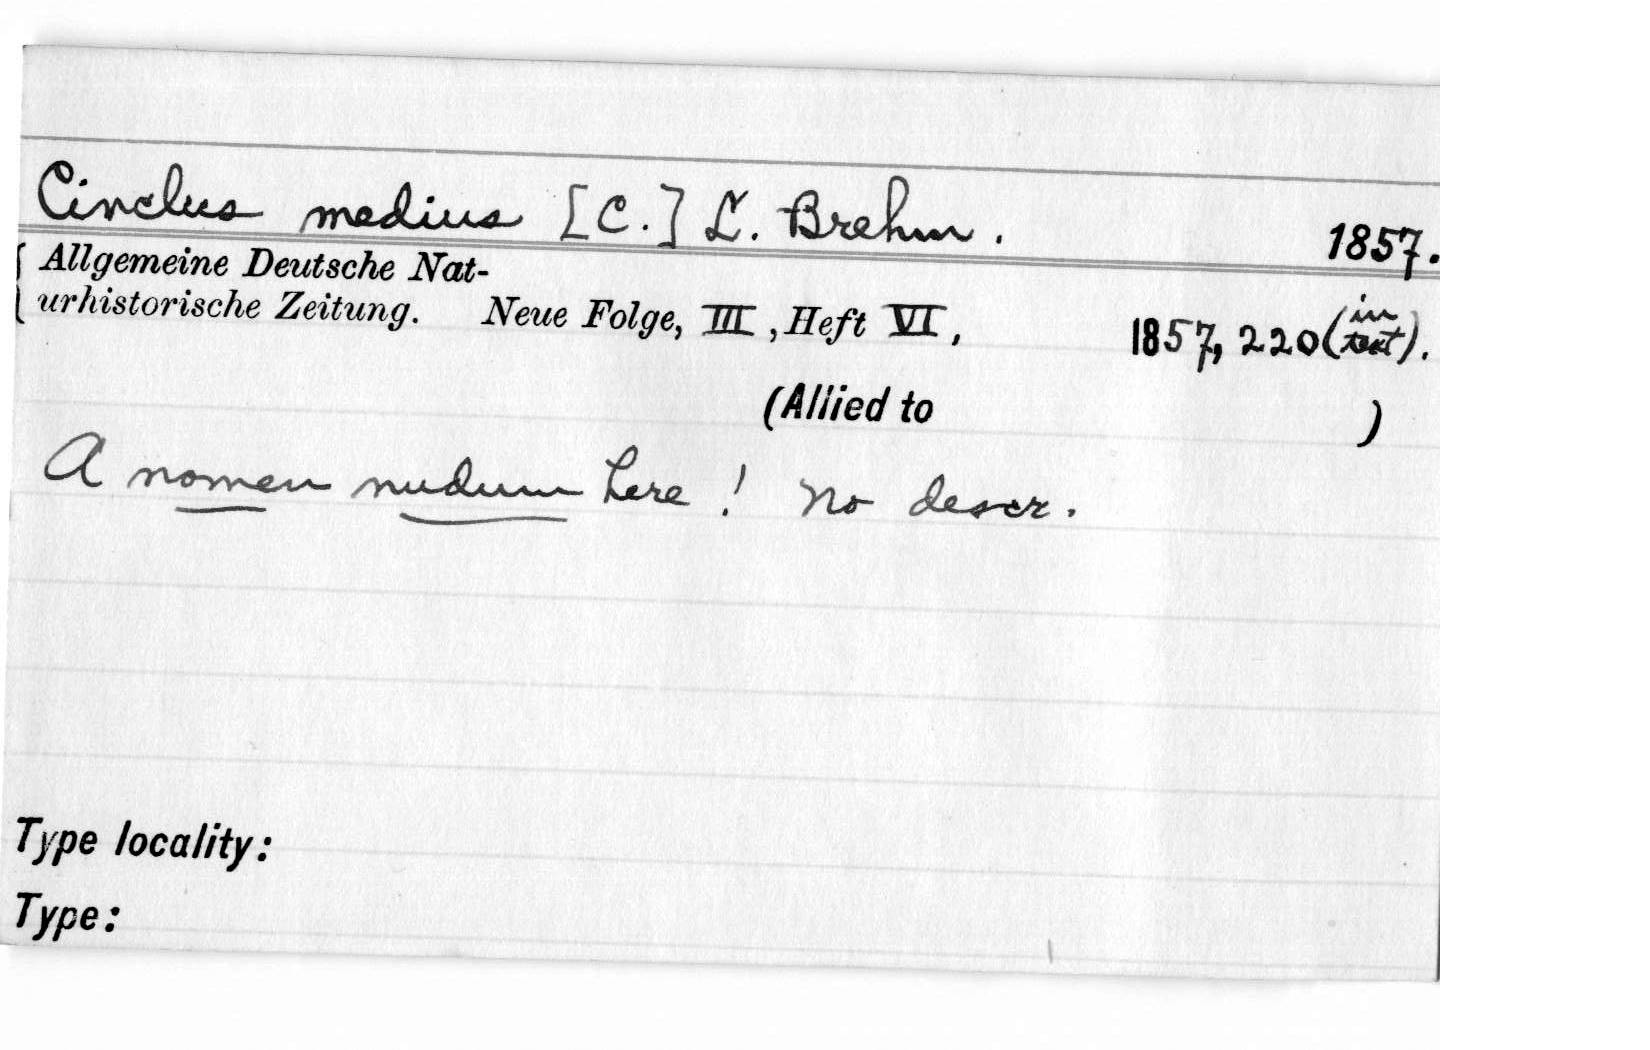 Cinclus medius [C.] L. Brehm. 1857.
Allgemeine Deutsche Nat-
urhistorische Zeitung. Neue Folge, III, Heft VI, 1857, 220 (in text).
(Allied to )
A nomen nudum here! No descr.
Type locality:
Type: